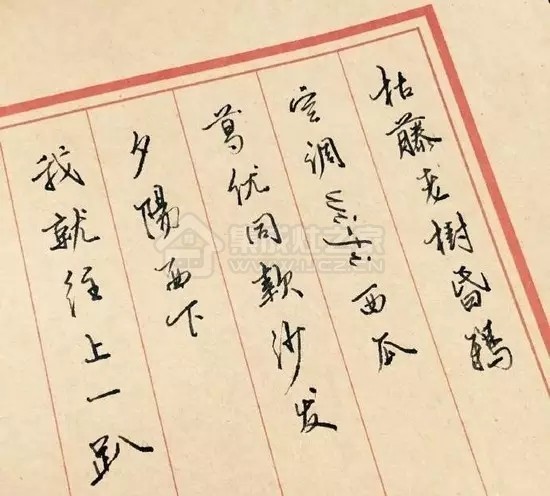 枯藤老樹昏鴉
空调wifi西瓜
葛优同款沙发
夕陽西下
我就往上一趴
集成灶之家